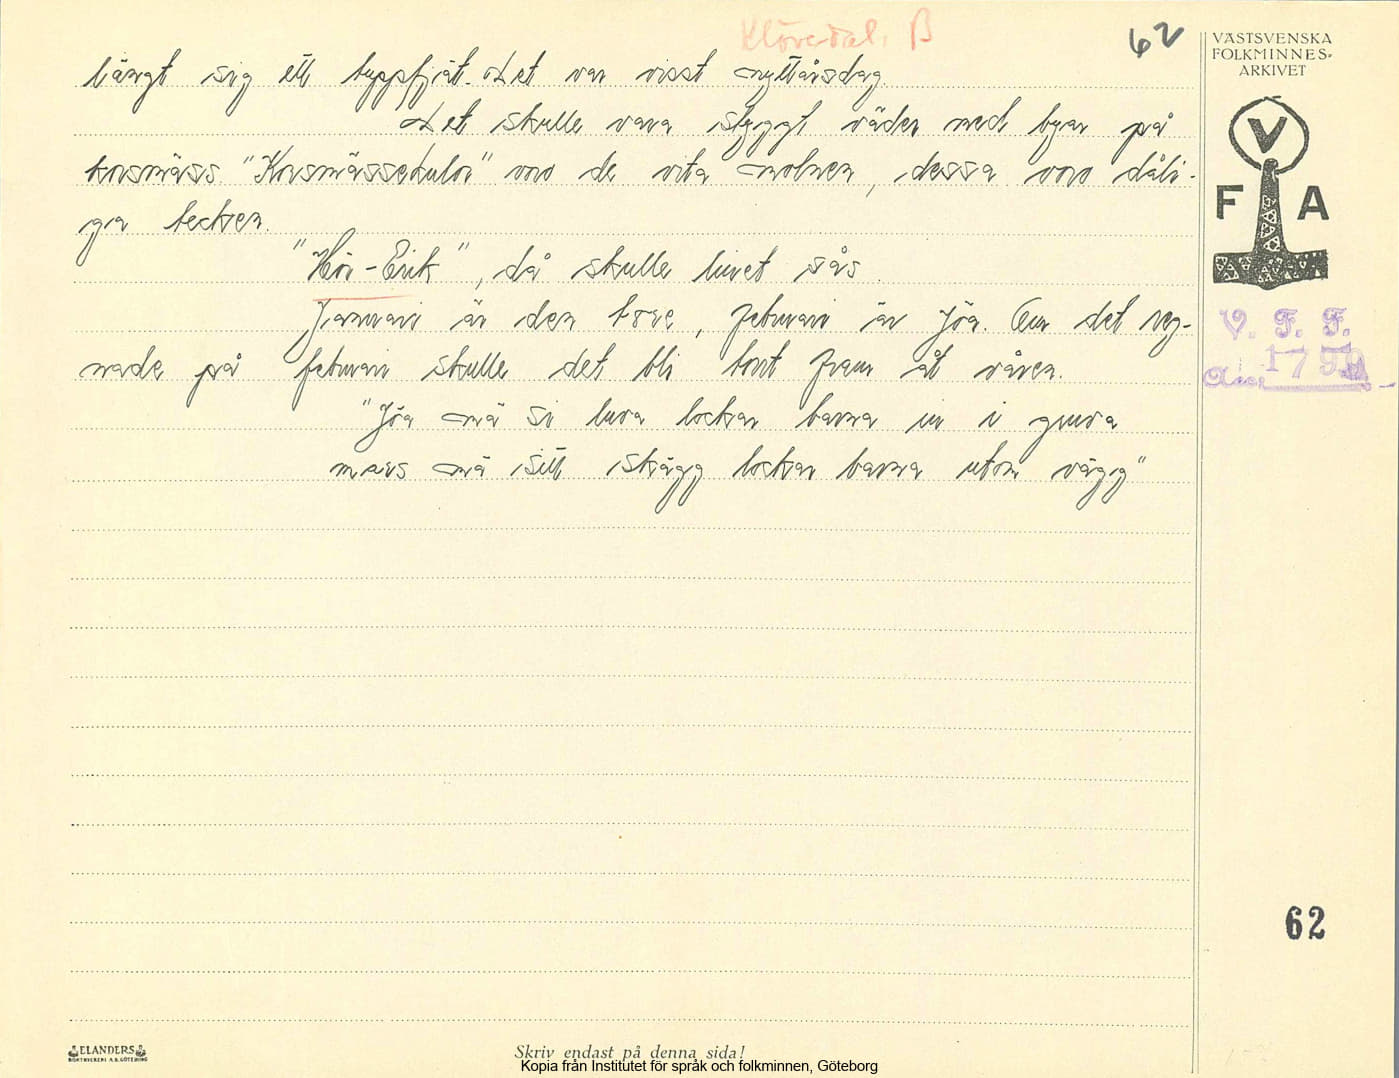 Klövedal, B
62
VÄSTSVENSKA
FOLKMINNES-
ARKIVET
längt sig ett tuppfjät. Det var visst nyttårsdag.
Det skulle vara styggt väder med byar på
korsmäss. "Korsmässedulor" voro de vita molnen, dessa voro dåli-
ga tecken.
"Hör-Erik", då skulle linet sås.
Januari är den tore, februari är Jöa. Om det reg-
nade på februari skulle det bli torrt fram åt våren.
"Jöa mä si luva lockar barna in i gruva
mars mä sitt skägg lockar barna utom vägg"
V
F A
V. F. F.
Acc. 1799
62
ELANDERS
BOKTRYCKERI A.B. GÖTEBORG
Skriv endast på denna sida!
Kopia från Institutet för språk och folkminnen, Göteborg